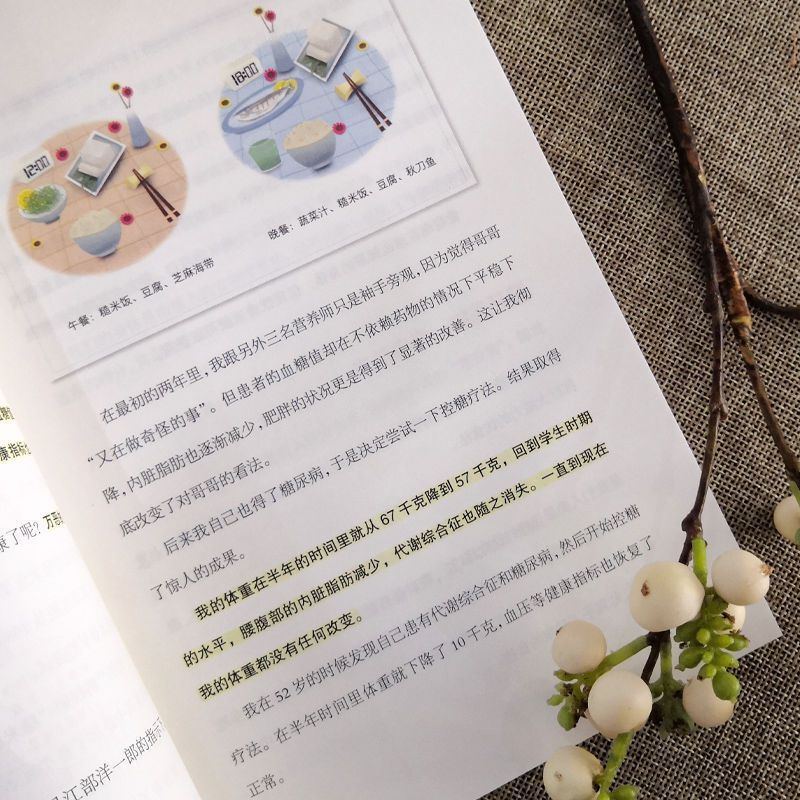 12:00
18:00
午餐：糙米饭、豆腐、芝麻海带
晚餐：蔬菜汁、糙米饭、豆腐、秋刀鱼
在最初的两年里，我跟另外三名营养师只是袖手旁观，因为觉得哥哥
“又在做奇怪的事”。但患者的血糖值却在不依赖药物的情况下平稳下
降，内脏脂肪也逐渐减少，肥胖的状况更是得到了显著的改善。这让我彻
底改变了对哥哥的看法。
后来我自己也得了糖尿病，于是决定尝试一下控糖疗法。结果取得
了惊人的成果。
我的体重在半年的时间里就从67千克降到57千克，回到学生时期
的水平，腰腹部的内脏脂肪减少，代谢综合征也随之消失。一直到现在
我的体重都没有任何改变。
我在52岁的时候发现自己患有代谢综合征和糖尿病，然后开始控糖
疗法。在半年时间里体重就下降了10千克，血压等健康指标也恢复了
正常。
康指标
康了呢？万
江部洋一郎的指示